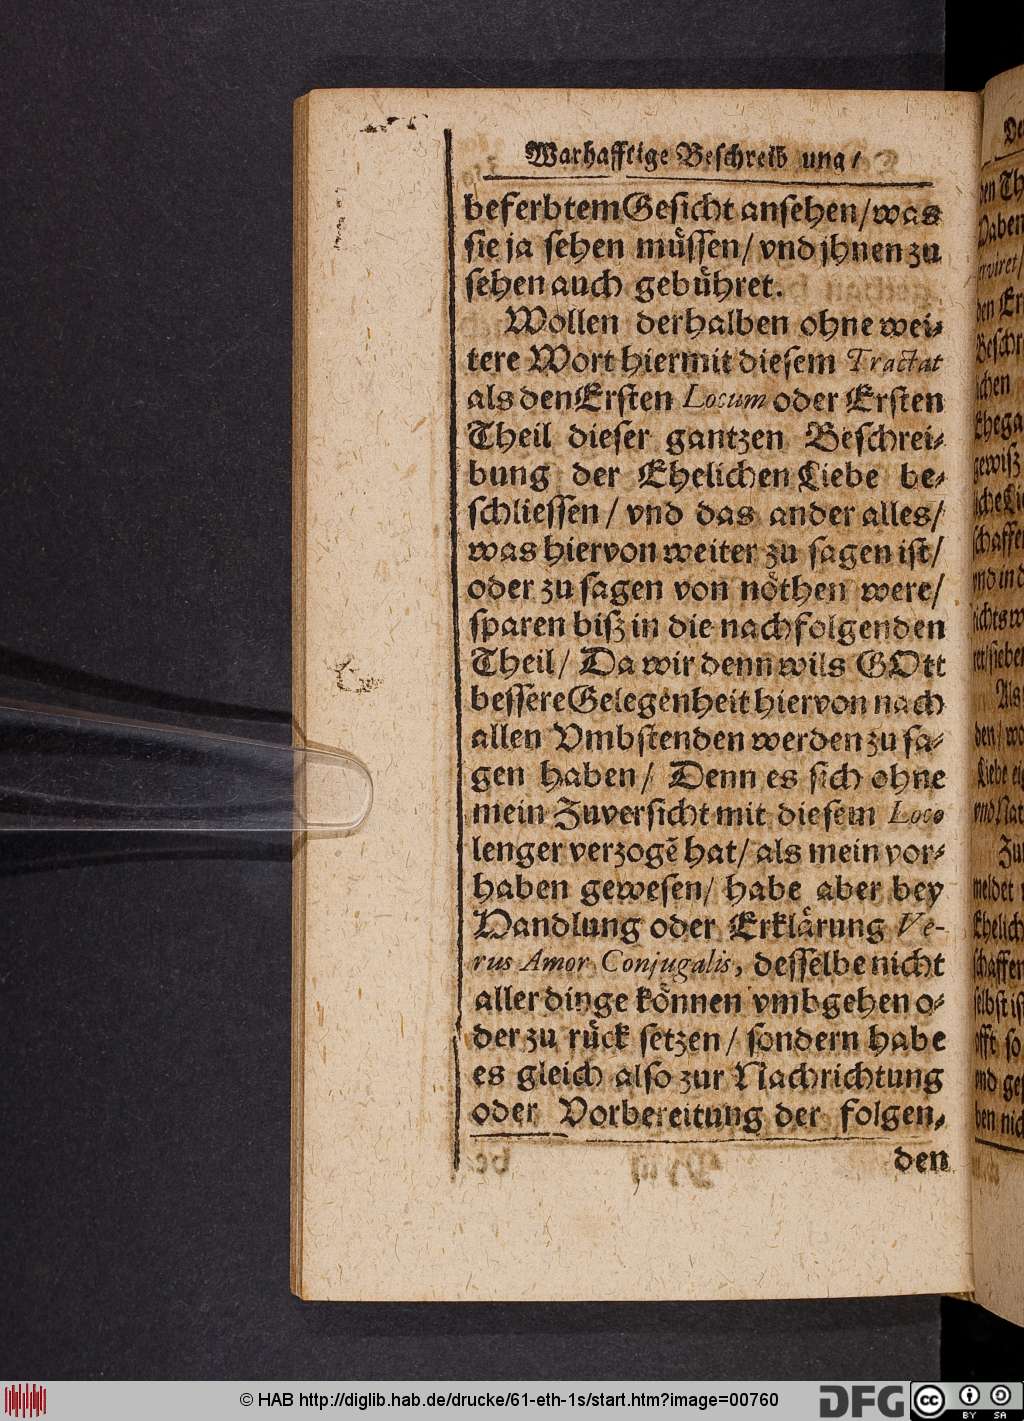 Warhafftige Beschreib ung/
beferbtem Gesicht ansehen/ was
sie ja sehen müssen/ vnd jhnen zu
sehen auch gebühret.
Wollen derhalben ohne wei-
tere Wort hiermit diesem Tractat
als den Ersten Locum oder Ersten
Theil dieser gantzen Beschrei-
bung der Ehelichen Liebe be-
schliessen/ vnd das ander alles/
was hiervon weiter zu sagen ist/
oder zu sagen von nöthen were/
sparen biß in die nachfolgenden
Theil/ Da wir denn wils GOtt
bessere Gelegenheit hiervon nach
allen Vmbstenden werden zu sa-
gen haben/ Denn es sich ohne
mein Zuversicht mit diesem Loco
lenger verzogẽ hat/ als mein vor-
haben gewesen/ habe aber bey
Handlung oder Erklärung Ve-
rus Amor Conjugalis, desselbe nicht
aller dinge können vmbgehen o-
der zu rück setzen/ sondern habe
es gleich also zur Nachrichtung
oder Vorbereitung der folgen-
den
© HAB http://diglib.hab.de/drucke/61-eth-1s/start.htm?image=00760
DFG
cc
BY SA